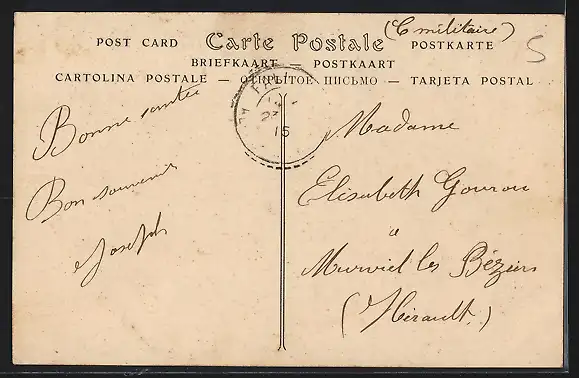 (C militaire)
POST CARD Carte Postale POSTKARTE
BRIEFKAART — POSTKAART
CARTOLINA POSTALE — ОТКРЫТОЕ ПИСЬМО — TARJETA POSTAL
5
15
Bonne santée
Bon souvenir
Joseph
Madame
Elisabeth Gourou
a
Murviel les Béziers
(Hérault.)